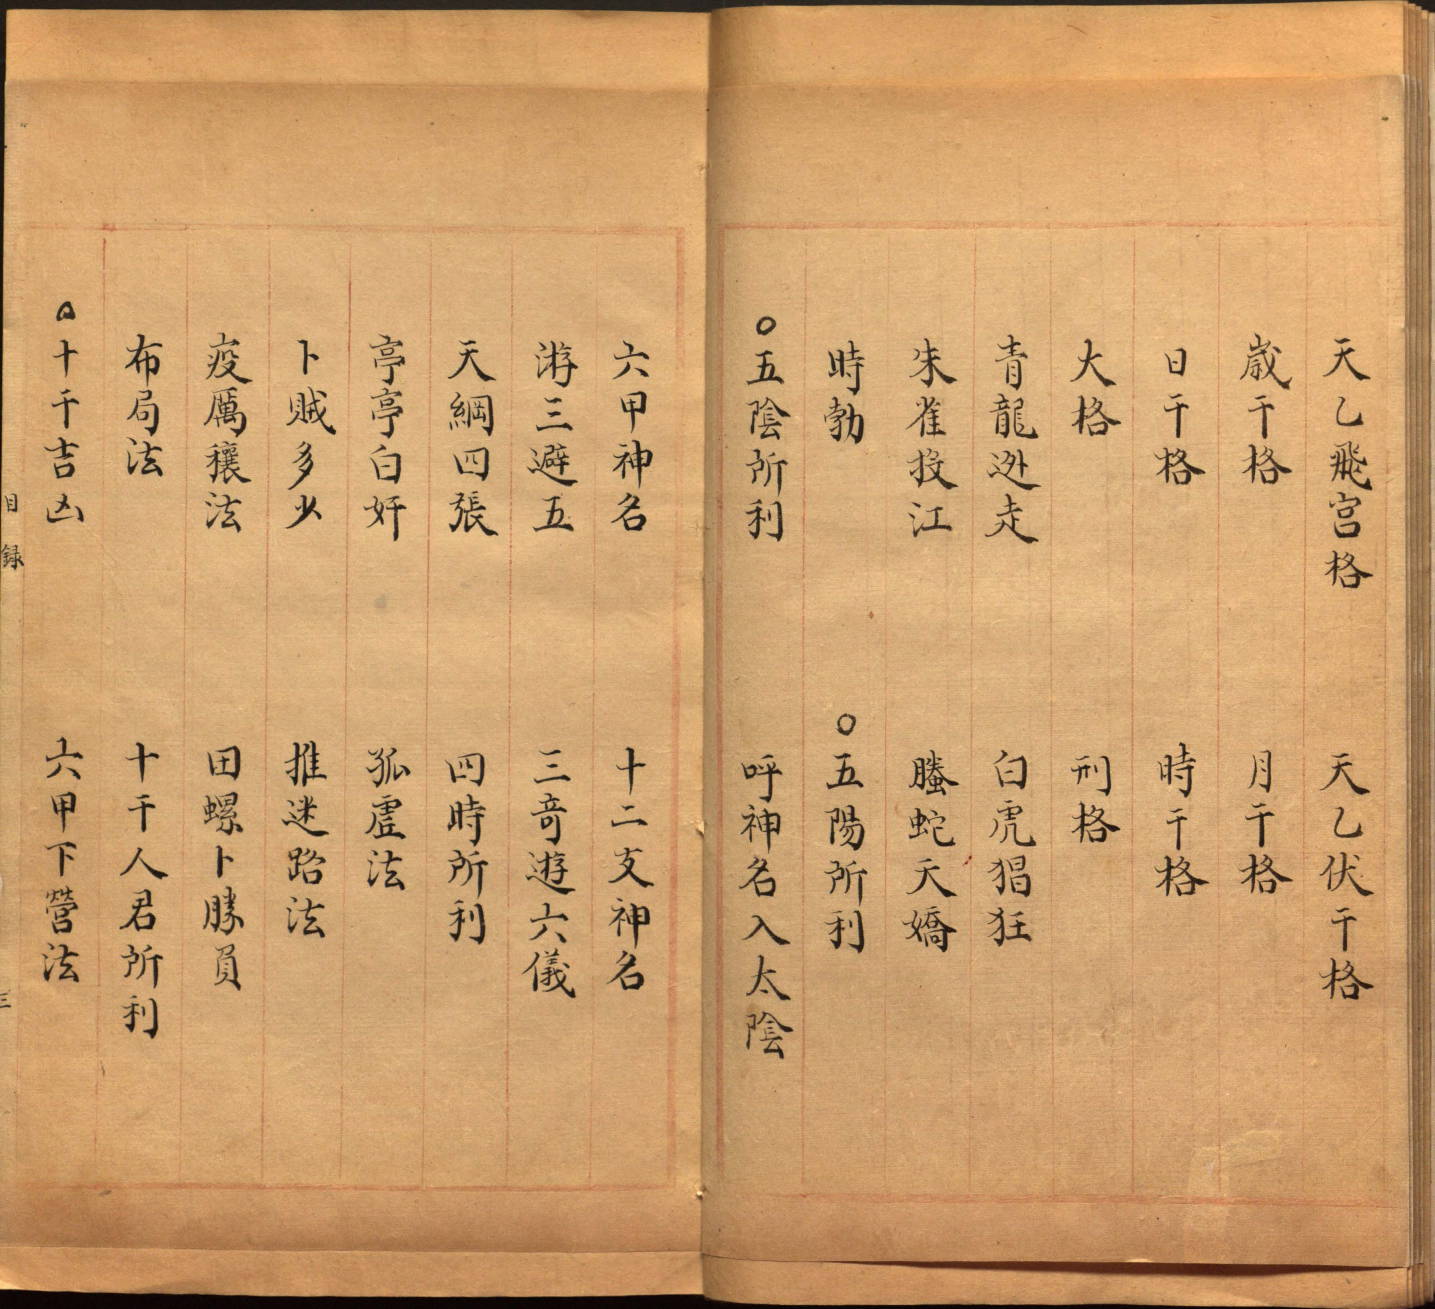 天乙飛宮格　天乙伏干格
歲干格　月干格
日干格　時干格
大格　刑格
青龍逃走　白虎猖狂
朱雀投江　螣蛇天嬌
時勃　○五陽所利
○五陰所利　呼神名入太陰
六甲神名　十二支神名
游三避五　三奇遊六儀
天綱四張　四時所利
亭亭白奸　孤虛法
卜賊多少　推迷路法
疫厲穰法　田螺卜勝負
布局法　十干人君所利
○十干吉凶　六甲下營法
目録　三